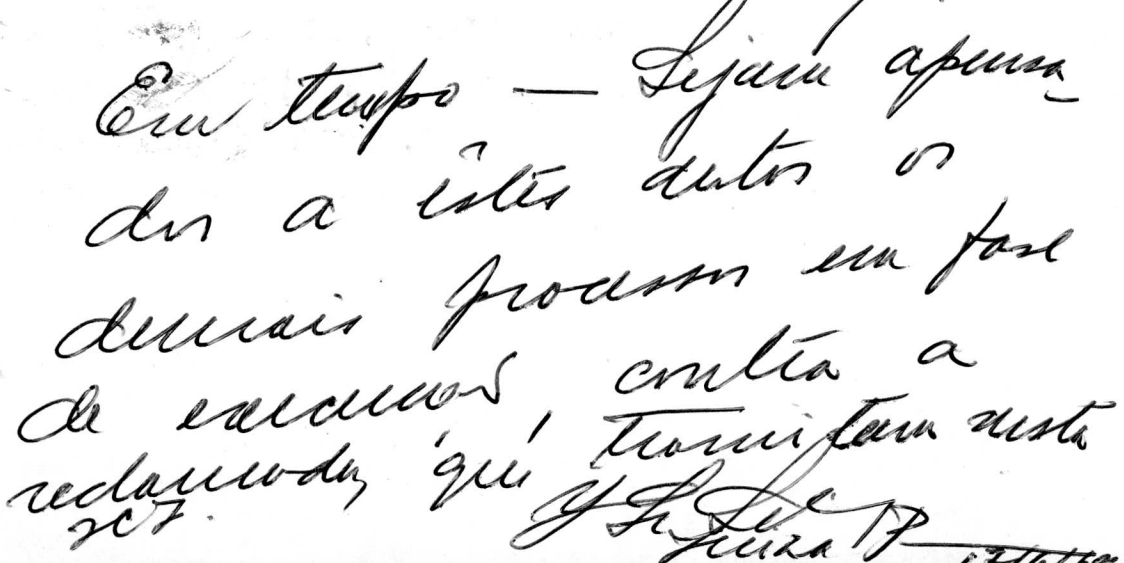 Em tempo — Sejam apensa-
dos a êstes autos os
demais processos em fase
de execução, contra a
reclamada, que tramitam nesta
JCJ.